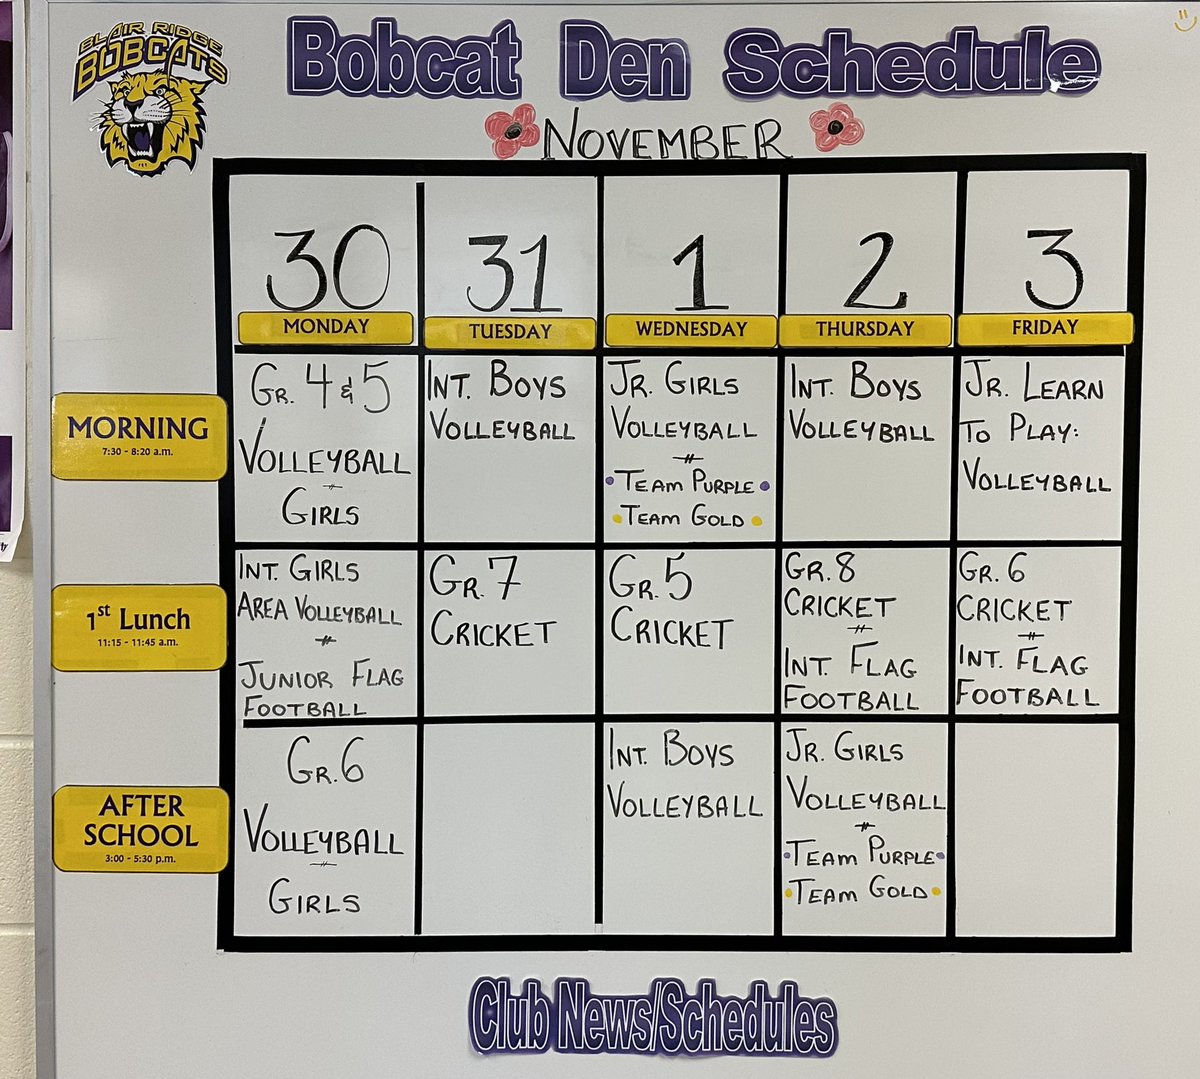 BLAIR RIDGE
BOBCATS
Bobcat Den Schedule
NOVEMBER
30
31
1
2
3
MONDAY
TUESDAY
WEDNESDAY
THURSDAY
FRIDAY
MORNING
7:30 - 8:20 a.m.
GR. 4 & 5
VOLLEYBALL
-
GIRLS
INT. BOYS
VOLLEYBALL
JR. GIRLS
VOLLEYBALL
TEAM PURPLE
TEAM GOLD
INT. BOYS
VOLLEYBALL
JR. LEARN
TO PLAY:
VOLLEYBALL
1st Lunch
11:15 - 11:45 a.m.
INT. GIRLS
AREA VOLLEYBALL
JUNIOR FLAG
FOOTBALL
GR. 7
CRICKET
GR. 5
CRICKET
GR. 8
CRICKET
INT. FLAG
FOOTBALL
GR. 6
CRICKET
INT. FLAG
FOOTBALL
AFTER
SCHOOL
3:00 - 5:30 p.m.
GR. 6
VOLLEYBALL
-
GIRLS
INT. BOYS
VOLLEYBALL
JR. GIRLS
VOLLEYBALL
TEAM PURPLE
TEAM GOLD
Club News/Schedules